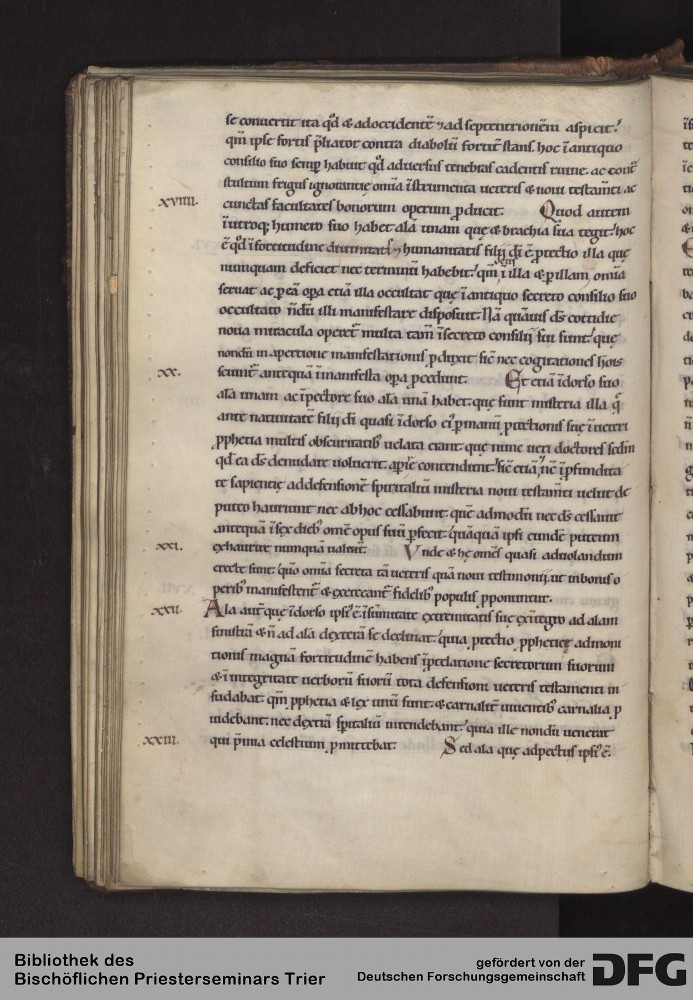 se conuertit ita qd̄ & ad occidentē & ad septentrionēm aspicit.
qm̄ ipse fortis p̄liator contra diabolū fortit̄ stans. hoc ī antiquo
consilio suo semp habuit qd̄ aduersus tenebras cadentis ruine. ac cont̄
stultum frigus ignorantie om̄ia īstrumenta ueteris & noui testam̄ti ac
XVIIII. cunctas facultates bonorum operum pduceret. Quod autem
ī utroq; humero suo habet alā unam que & brachia sua tegit. hoc
ē qd̄ ī fortitudine diuinitatis & humanitatis filij dī ē ptectio illa que
numquam deficiet nec terminū habebit. qm̄ ī illa & p illam om̄ia
seruat ac p eā opa etiā illa occultat que ī antiquo secreto consilio suo
occultato n̄dū illi manifestare disposuit. Nā quāuis d̄s cottidie
noua miracula operet̄ multa tam̄ ī secreto consilij sui sunt. que
nondū in apertione manifestationis pduxit. sic̄ nec cogitationes hōis
XX. sciunt̄ antequā ī manifesta opa pcedunt. Et etiā ī dorso suo
alā unam ac ī pectore suo alā unā habet. que sunt misteria illa q̄
ante natiuitatē filij dī quasi ī dorso ei' p manū ptectionis sue ī ueteri
pphetia multis obscuritatib' uelata erant. que nunc ueri doctores sedm
qd̄ ea d̄s denudare uoluerit. apte contendunt. sic̄ etiā nc̄ ī pfundita
te sapientie ad defensionē spiritaliū misteria noui testam̄ti uelut de
puteo hauriunt nec ab hoc cessabunt. quē admodū nec d̄s cessauit
antequā ī sex dieb' om̄e opus suū pfecit. quāquā ipsi eundē puteum
XXI. exhaurire numquā ualeāt. Vnde & he om̄es quasi aduolandum
erecte sunt. quō om̄ia secreta tā ueteris quā noui testimonij. ut in bonis o
perib' manifestent̄ & exerceant̄ fidelib' populis pponuntur.
XXII. Ala aut̄ que ī dorso ipsi' ē. ī sūmitate extremitatis sue ex ītegro ad alam
sinistrā & n̄ ad alā dexterā se declinat. quia ptectio pphetie admoni
tionis magnā fortitudinē habens ī pelatione secretorum suorum
& ī integritate uerborū suorū tota defensioni ueteris testamenti in
sudabat. qm̄ pphetia & lex unū sunt. & carnalit̄ uiuentib' carnalia p
uidebant. nec dextrā spiritaliū intendebant. quia ille nondū uenerat
XXIII. qui p̄mia celestium pmittebat. Sed ala que ad pectus ipsi' ē.
Bibliothek des
Bischöflichen Priesterseminars Trier
gefördert von der
Deutschen Forschungsgemeinschaft
DFG